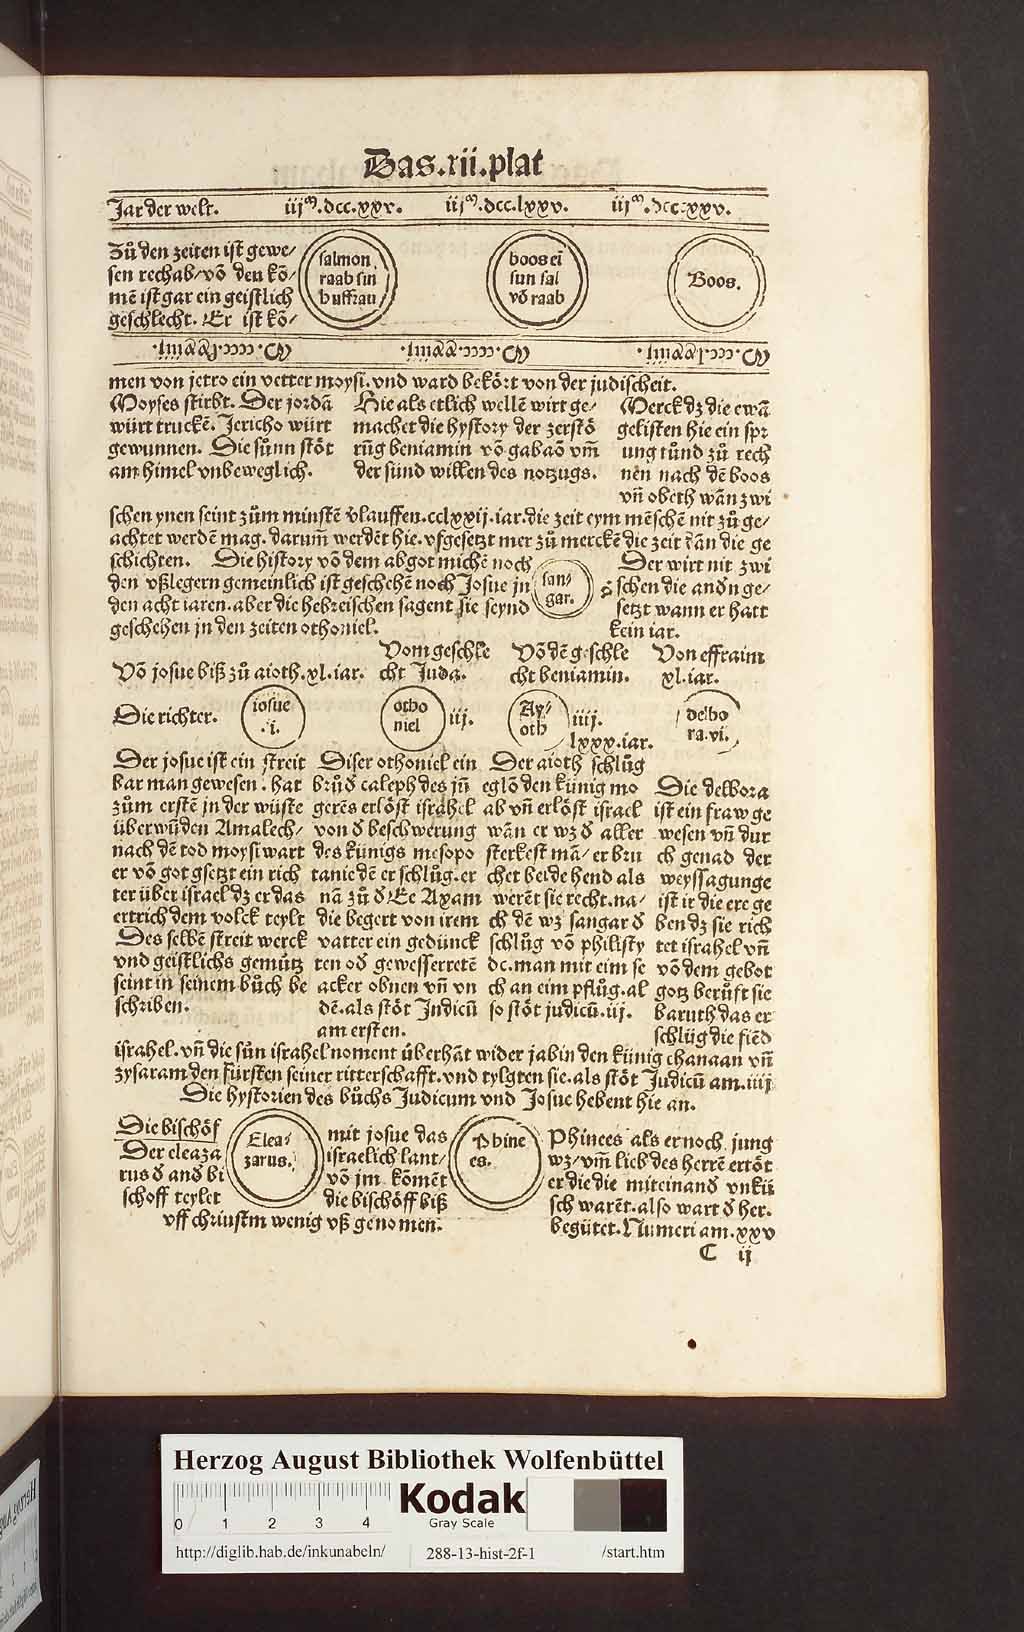 Das.xii.plat
Jar der welt. iijᵐ.dcc.xxv. iijᵐ.dcc.lxxv. iijᵐ.dcc.xxv.
Zů den zeiten ist gewe/
sen rechab/võ den kõ/
mẽ ist gar ein geistlich
geschlecht. Er ist kõ/
salmon
raab sin
huffrau
boos eĩ
sun sal
võ raab
Boos.
men von jetro ein vetter moysi.vnd ward bekört von der judischeit.
Moyses stirbt. Der jordã
würt truckẽ. Jericho würt
gewunnen. Die sůnn stöt
am himel vnbeweglich.
Hie als etlich wellẽ wirt ge/
machet die hystory der zerstö
rũg beniamin võ gabaõ vm̃
der sünd willen des notzugs.
Merck dz die ewã
gelisten hie ein spr
ung tůnd zů rech
nẽn nach dẽ boos
vñ obeth wãn zwi
schen ynen seint zům minstẽ v̈lauffen.cclxxij.iar.die zeit eym mẽschẽ nit zů ge/
achtet werdẽ mag. darum̃ werdẽt hie.vfgesetzt mer zů merckẽ die zeit dãn die ge
schichten. Die history võ dem abgot miche noch
den vßlegern gemeinlich ist geschehẽ noch Josue jn
den acht iaren.aber die hebreischen sagent sie seynd
geschehen jn den zeiten othoniel.
san/
gar.
Der wirt nit zwi
schen die andn ge/
setzt wann er hatt
kein iar.
Võ josue biß zů aioth.xl.iar.
Vom geschle
cht Juda.
Võ dẽ geschle
cht beniamin.
Von effraim
xl.iar.
Die richter.
iosue
.i.
otho
niel
iij.
Ay/
oth
iiij.
lxxx.iar.
delbo
ra.vi.
Der josue ist ein streit
bar man gewesen . hat
zům erstẽ jn der wüste
überwũden Amalech/
nach dẽ tod moysi wart
er võ got gsetzt ein rich
ter über israel dz er das
ertrich dem volck teylt
Des selbẽ streit werck
vnd geistlichs gemütz
seint in seinem bůch be
schriben.
Diser othoniel ein
brůd caleph des jũ
gerẽs erlöst israhel
von d beschwerung
des künigs mesopo
tanie dẽ er schlůg.er
nã zů d Ee Axam
die begert von irem
vatter ein gedünck
ten od gewesserretẽ
acker obnen vñ vn
dẽ.als stöt Judicũ
am ersten.
Der aioth schlůg
eglõ den künig mo
ab vñ erlöst israel
wãn er wz d aller
sterkest mã/ er bru
chet beide hend als
werẽt sie recht.na/
ch dẽ wz sangar d
schlůg võ philisty
dc.man mit eim se
ch an eim pflůg.al
so stöt judicũ.iij.
Die delbora
ist ein fraw ge
wesen vñ dur
ch genad der
weyssagunge
ist ir die ere ge
ben dz sie rich
tet israhel vñ
võ dem gebot
gotz berůft sie
baruth das er
schlůg die fiẽd
israhel.vñ die sün israhel noment überhãt wider jabin den künig chanaan vñ
zysaram den fürsten seiner ritterschafft.vnd tylgten sie.als stöt Judicũ am.iiij
Die hystorien des bůchs Judicum vnd Josue hebent hie an.
Die bischöf
Der eleaza
rus d and bi
schoff teylet
Elea/
zarus.
mit josue das
israelich lant/
võ jm kõmẽt
die bischöff biß
vff christm wenig vß genomen.
Phine
es.
Phinees als er noch jung
wz/vm̃ lieb des herrẽ ertöt
er die die miteinand vnkü
sch warẽt.also wart d her.
begütet.Numeri am.xxv
C ij
Herzog August Bibliothek Wolfenbüttel
0 1 2 3 4
Kodak
Gray Scale
http://diglib.hab.de/inkunabeln/ 288-13-hist-2f-1 /start.htm